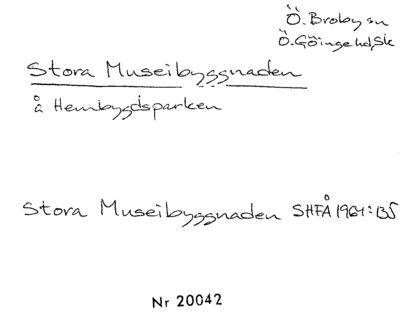 Ö. Broby sn
Ö. Göinge hd, Sk
Stora Museibyggnaden
å Hembygdsparken
Stora Museibyggnaden SHFÅ 1961:135
Nr 20042